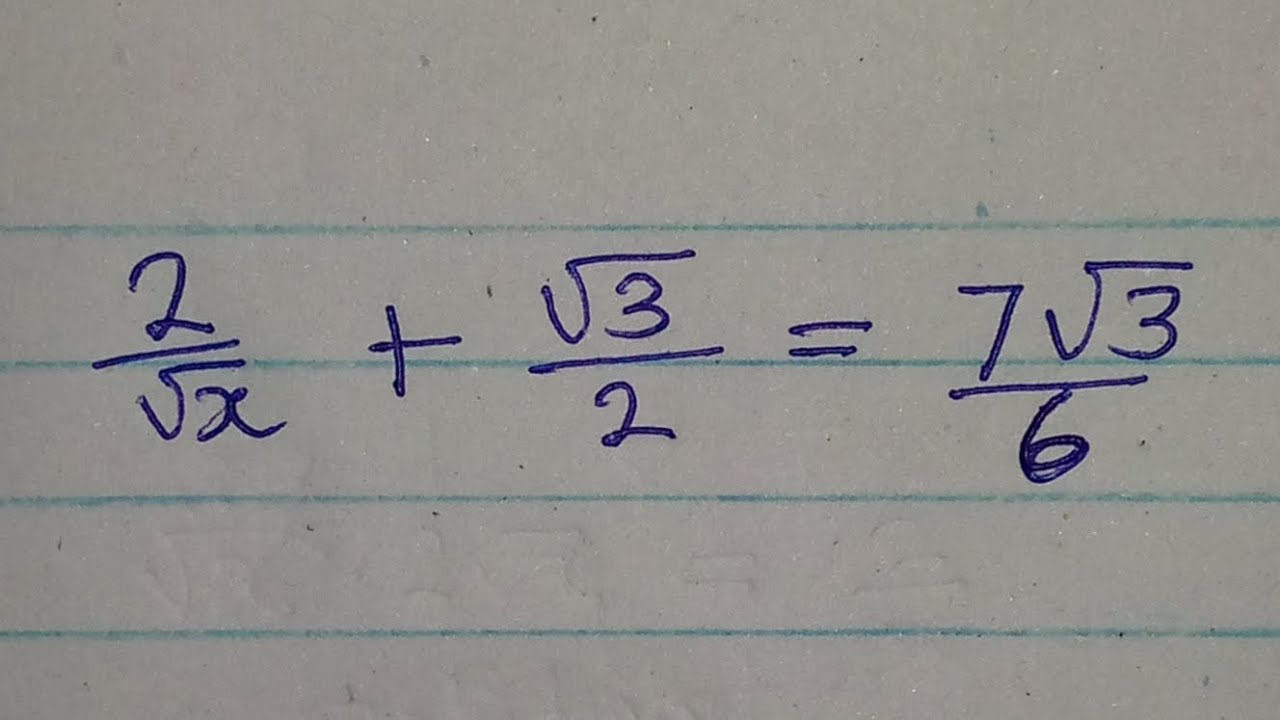 2/√x + √3/2 = 7√3/6